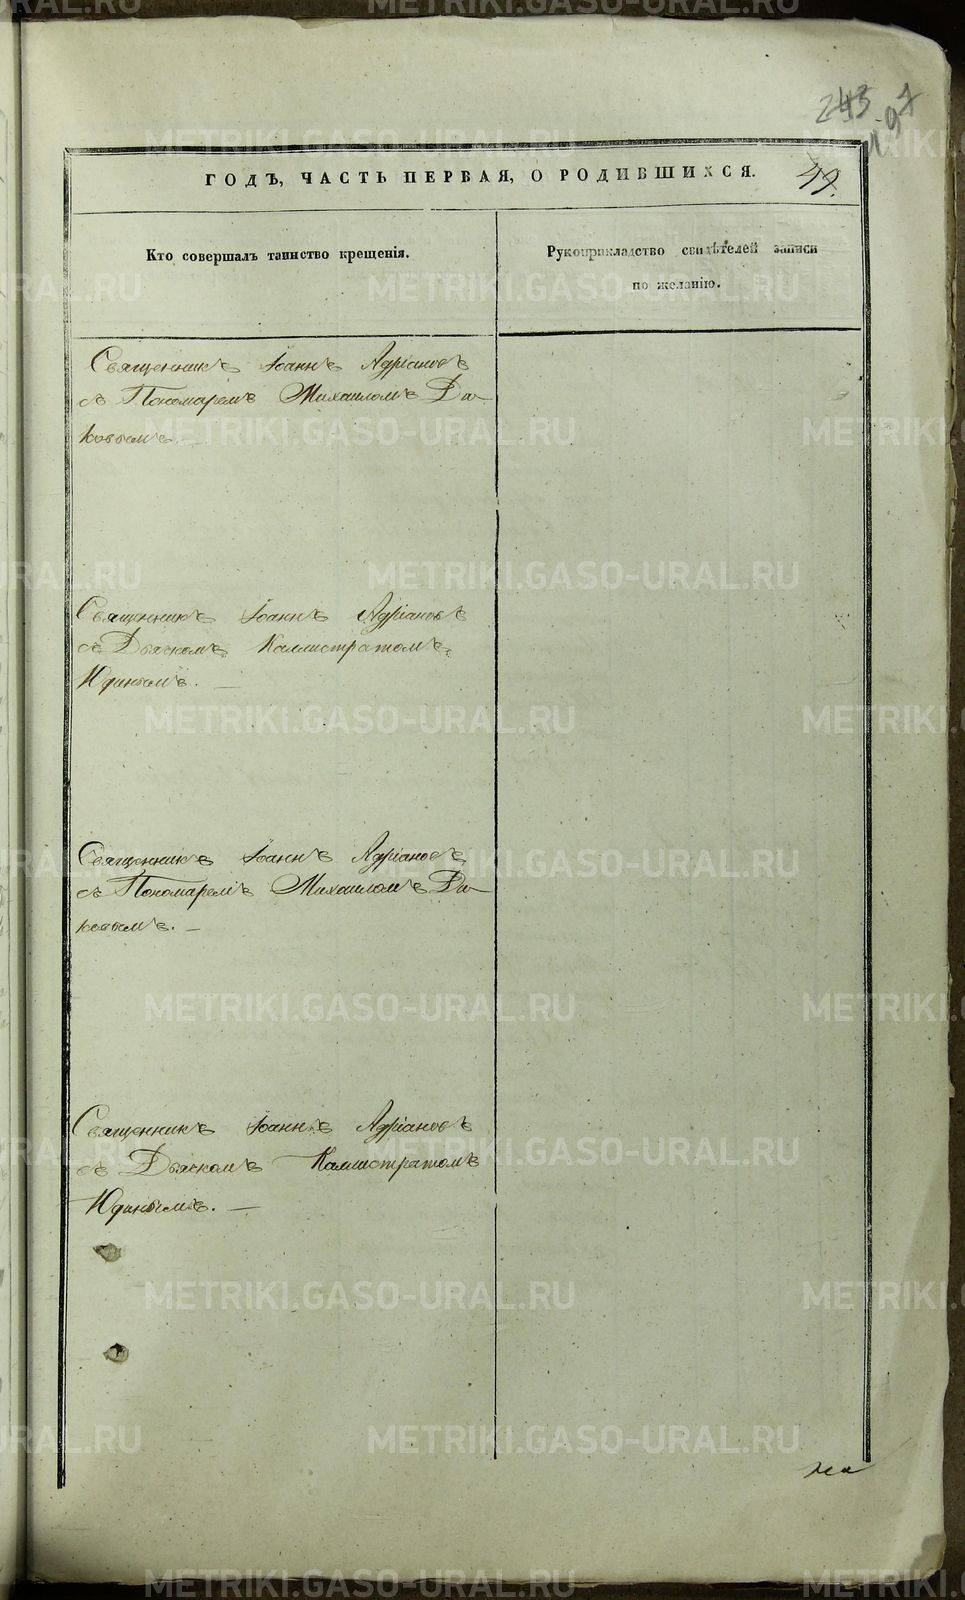 243
497
ГОДЪ, ЧАСТЬ ПЕРВАЯ, О РОДИВШИХСЯ. 49.
Кто совершалъ таинство крещенія.
Рукоприкладство свидѣтелей записи
по желанію.
Священникъ Іоаннъ Адріановъ
съ Пономаремъ Михаиломъ Ди-
ковымъ. —
Священникъ Іоаннъ Адріановъ
съ Дьячкомъ Каллистратомъ
Юдинымъ. —
Священникъ Іоаннъ Адріановъ
съ Пономаремъ Михаиломъ Ди-
ковымъ. —
Священникъ Іоаннъ Адріановъ
съ Дьячкомъ Каллистратомъ
Юдинымъ. —
METRIKI.GASO-URAL.RU